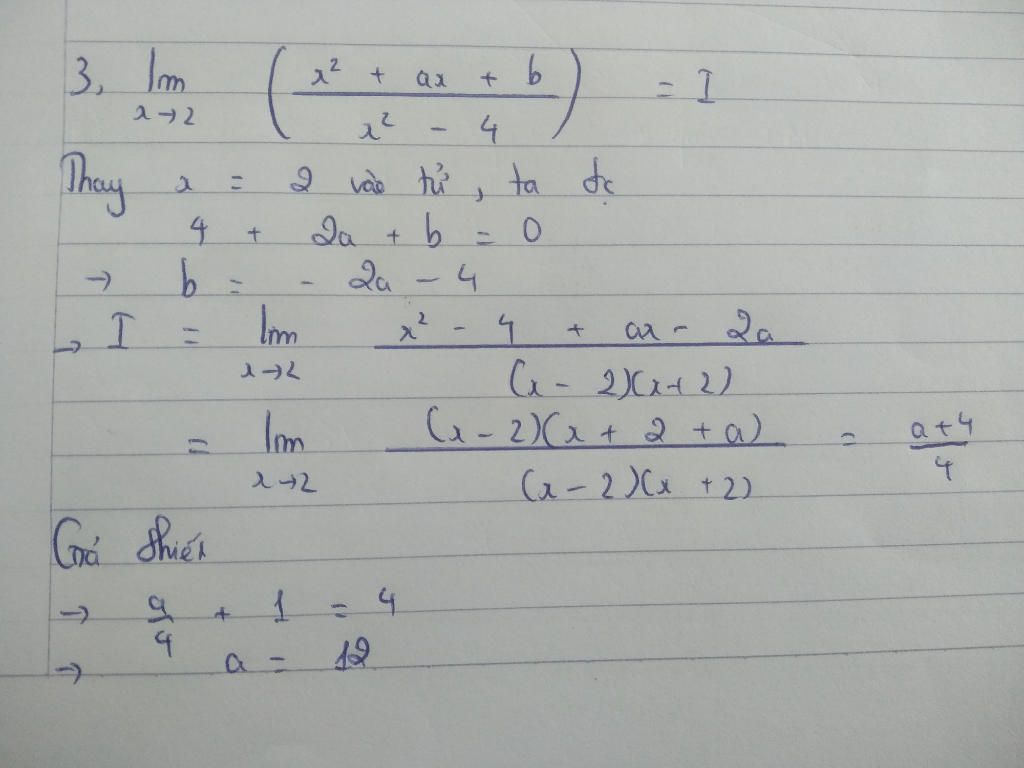 3, lim ( (x² + ax + b) / (x² - 4) ) = I
x→2
Thay x = 2 vào tử, ta đc
4 + 2a + b = 0
→ b = - 2a - 4
→ I = lim (x² - 4 + ax - 2a) / ((x - 2)(x + 2))
x→2
= lim ((x - 2)(x + 2 + a)) / ((x - 2)(x + 2)) = (a + 4) / 4
x→2
Giả thiết
→ a/4 + 1 = 4
→ a = 12